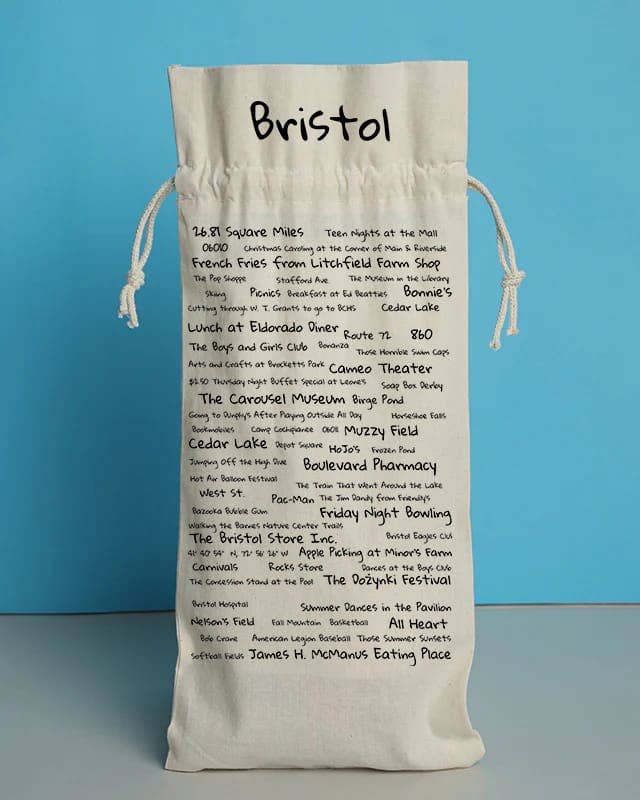 Bristol
26.81 Square Miles Teen Nights at the Mall
06010 Christmas Caroling at the Corner of Main & Riverside
French Fries from Litchfield Farm Shop
The Pop Shoppe Stafford Ave. The Museum in the Library
Skiing Picnics Breakfast at Ed Beatties Bonnie's
Cutting through W. T. Grants to go to BCHS Cedar Lake
Lunch at Eldorado Diner Route 72 860
The Boys and Girls Club Bonanza Those Horrible Swim Caps
Arts and Crafts at Brocketts Park Cameo Theater
$2.50 Thursday Night Buffet Special at Leone's Soap Box Derby
The Carousel Museum Birge Pond
Going to Dunphy's After Playing Outside All Day Horseshoe Falls
Bookmobiles Camp Cochipianee 06011 Muzzy Field
Cedar Lake Depot Square HoJo's Frozen Pond
Jumping Off the High Dive Boulevard Pharmacy
Hot Air Balloon Festival The Train That Went Around the Lake
West St. Pac-Man The Jim Dandy from Friendly's
Bazooka Bubble Gum Friday Night Bowling
Walking the Barnes Nature Center Trails
The Bristol Store Inc. Bristol Eagles Club
41° 40' 54" N, 72° 56' 26" W Apple Picking at Minor's Farm
Carnivals Rocks Store Dances at the Boys Club
The Concession Stand at the Pool The Dożynki Festival
Bristol Hospital Summer Dances in the Pavilion
Nelson's Field Fall Mountain Basketball All Heart
Bob Crane American Legion Baseball Those Summer Sunsets
Softball Fields James H. McManus Eating Place